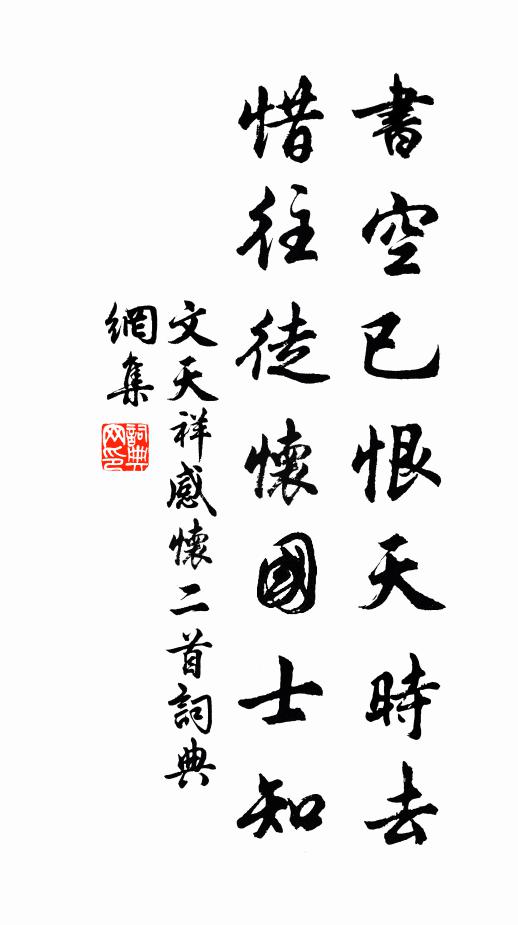 書空已恨天時去
惜往徒懷國士知
文天祥感懷二首詞典
網集
詞典
网印